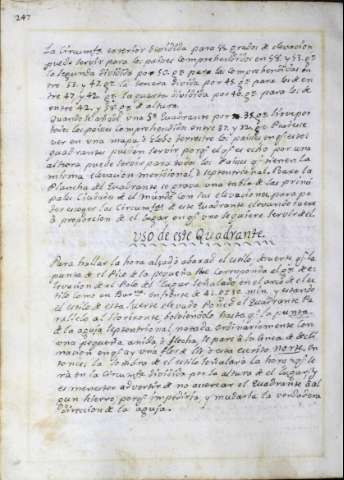 247
La Circunfa exterior dividida para 55 grados de elevacion
puede servir para los paises comprehendidos en 58. y 53. gs
la segunda dividida por 50. gs para los comprehendidos en
tre 53. y 47. gs. la tercera divida por 45. gs. para los de en
tre 47. y 42. gs. la quarta dividida por 40. gs. para los de
entre 42. y 38. gs. de altura.
por 35. gs. sirve por
todos los paises comprehendidos entre 37. y 32. gs. Puedese
ver en una mapa ò Globo terrestre los paises en qe estos
quadrantes pueden servir porqe el qe es echo por una
altura puede servir para todos los Paises qe tienen la
misma elevacion meridional, ò septentrional. Baxo la
Plancha del Quadrante se grava una tabla de las prin
pales Ciudades de el Mundo con sus elevaciones, para po
der escoger las Circunfas de este Quadrante
à proporcion de el lugar en qe uno se quiere servir del.
Uso de este Quadrante.
Para hallar la hora alzado ò baxado el estilo de suerte qe la
punta de el Pico de la pequeña Ave corresponda al gdo de e
levacion de el Polo del Lugar señalado en el arco de el es
tilo como en
el estilo de esta suerte elevado Poned el Quadrante Pa
ralelo al Horizonte bolviendole hasta qe la punta
de la aguja septentrional, notada ordinariamente con
una pequeña anilla ò flecha, se pare à la linea de decli
nacion en qe hay una flor de lis ò esta escrito norte. En
tonces la sombra de el estilo señalará la hora qe se
rà en la Circunfa dividida por la altura de el Lugar y
es menester advertir de no acercar el Quadrante à al
gun hierro porqe impediria, y mudaria la verdadera
direccion de la aguja.